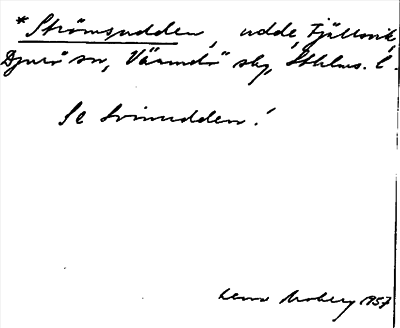 *Strömsudden, udde, Fjällsvik,
Djurö sn, Värmdö slg, Sthlms. l.
Se Svinudden!
Moberg 1957